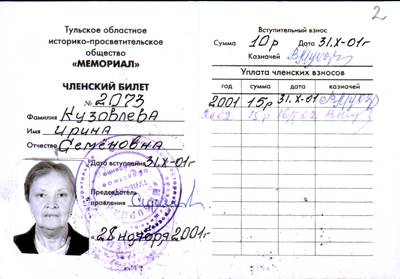 2
Тульское областное
историко-просветительское
общество
«МЕМОРИАЛ»
ЧЛЕНСКИЙ БИЛЕТ
№ 2073
Фамилия Кузовлева
Имя Ирина
Отчество Семёновна
Дата вступления 31.X-01г
Председатель
правления
«28 ноября 2001г
Вступительный взнос
Сумма 10р Дата 31.X-01г
Казначей
Уплата членских взносов
год сумма дата казначей
2001 15р 31.X-01
2002 15р